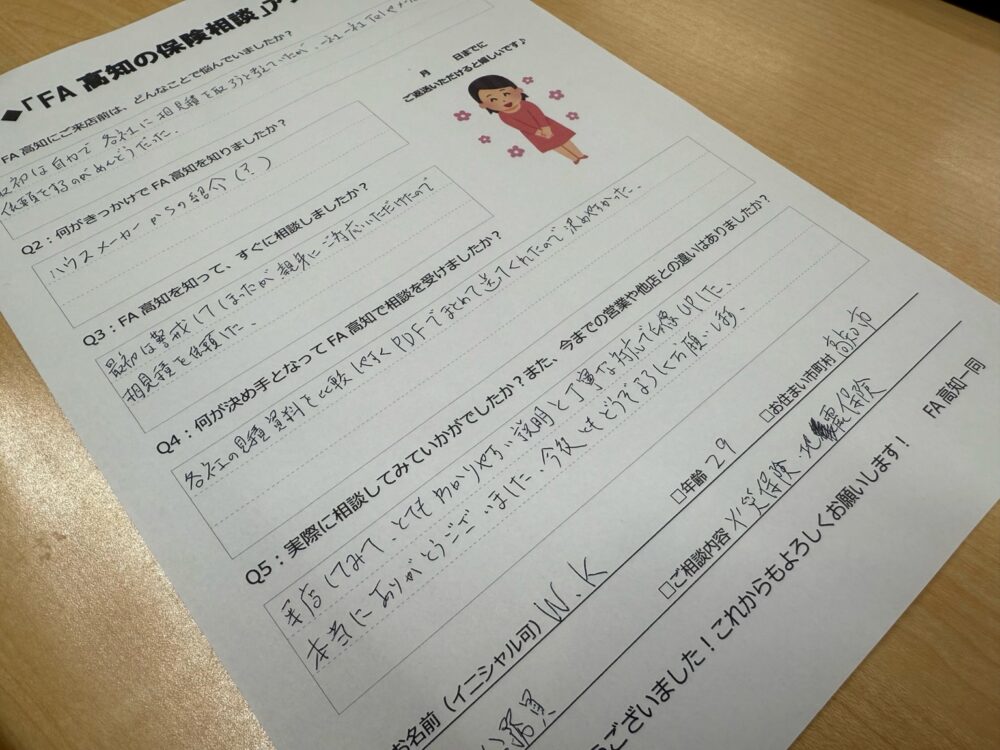 ◆「FA 高知の保険相談」ア
FA 高知にご来店前は、どんなことで悩んでいましたか？
最初は自力で各社に相見積を取ろうと考えていたが、一社一社Telやメール
依頼をするのがめんどうだった。
月 日までに
ご返送いただけると嬉しいです♪
Q2：何がきっかけでFA高知を知りましたか？
ハウスメーカーからの紹介(？)
Q3：FA高知を知って、すぐに相談しましたか？
最初は警戒してしまったが、親身にご対応いただけたので
相見積を依頼した。
Q4：何が決め手となってFA高知で相談を受けましたか？
各社の見積資料を比較しやすくPDFでまとめて送ってくれたので決めやすかった。
Q5：実際に相談してみていかがでしたか？また、今までの営業や他店との違いはありましたか？
来店してみて、とてもわかりやすい説明と丁寧な対応で印象UPした。
本当にありがとうございました。今後ともどうぞよろしくお願いします。
お名前（イニシャル可） W.K
□年齢 29
□お住まい市町村 高知市
公務員
□ご相談内容 火災保険 地震保険
うございました！これからもよろしくお願いします！
FA 高知一同